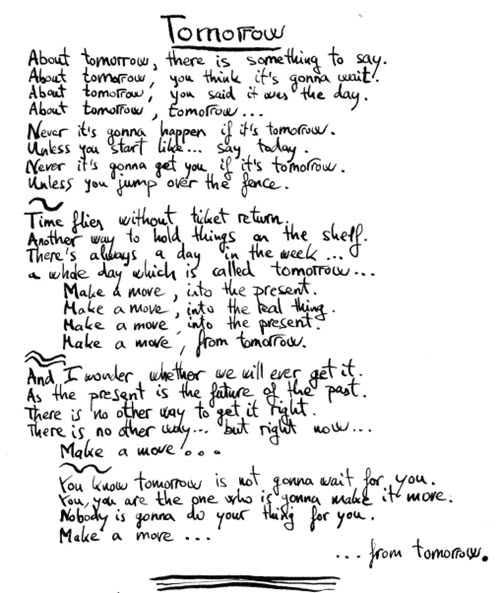 Tomorrow
About tomorrow, there is something to say.
About tomorrow, you think it's gonna wait.
About tomorrow, you said it was the day.
About tomorrow, tomorrow...
Never it's gonna happen if it's tomorrow.
Unless you start like... say today.
Never it's gonna get you if it's tomorrow.
Unless you jump over the fence.
Time flies without ticket return.
Another way to hold things on the shelf.
There's always a day in the week...
a whole day which is called tomorrow...
Make a move, into the present.
Make a move, into the real thing.
Make a move, into the present.
Make a move, from tomorrow.
And I wonder whether we will ever get it.
As the present is the future of the past.
There is no other way to get it right.
There is no other way... but right now...
Make a move...
You know tomorrow is not gonna wait for you.
You, you are the one who is gonna make it move.
Nobody is gonna do your thing for you.
Make a move...
...from tomorrow.